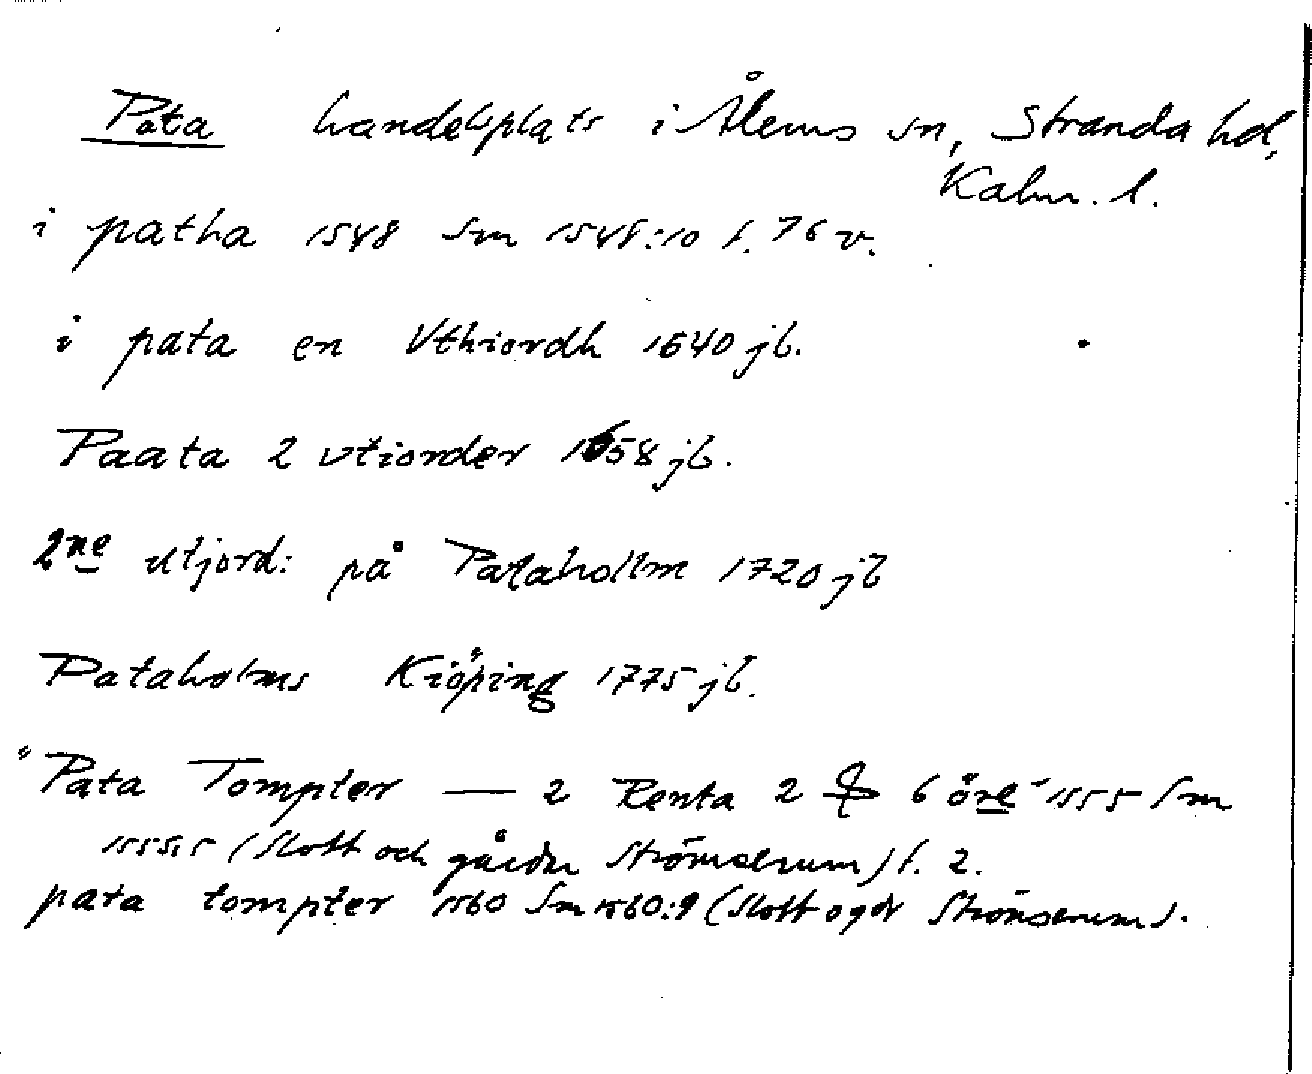 Pata handelsplats i Ålems sn, Stranda hd,
Kalm. l.
i patha 1548 Sm 1548:10 f. 76 v.
i pata en Vthiordh 1640 jb.
Paata 2 vtiorder 1658 jb.
2ne utjord: på Pataholm 1720 jb
Pataholms Kiöping 1775 jb.
"Pata Tompter — 2 Renta 2 6 öre" 1555 Sm
1555:5 (Slott och gårdar Strömserum) f. 2.
pata tompter 1560 Sm 1560:9 (Slott o gdr Strömserum).